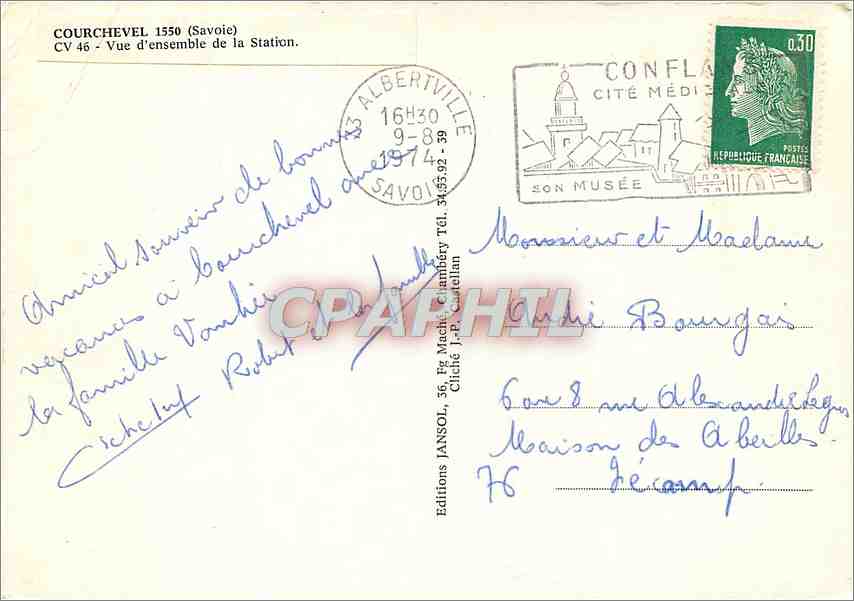 COURCHEVEL 1550 (Savoie)
CV 46 - Vue d'ensemble de la Station.
73 ALBERTVILLE
16H30
9-8
1974
SAVOIE
CONFLA
CITÉ MÉDI
SON MUSÉE
0,30
POSTES
REPUBLIQUE FRANÇAISE
Amical souvenir de bonnes
vacances à Courchevel avec
la famille
Robert et la famille
CPAPHIL
Editions JANSOL, 36, Fg Maché, Chambéry Tél. 34.55.92 - 39
Cliché J.-P. Castellan
Monsieur et Madame
André Bourgais
6 ou 8 rue Alexandre Legros
Maison des Abeilles.
76 Fécamp.